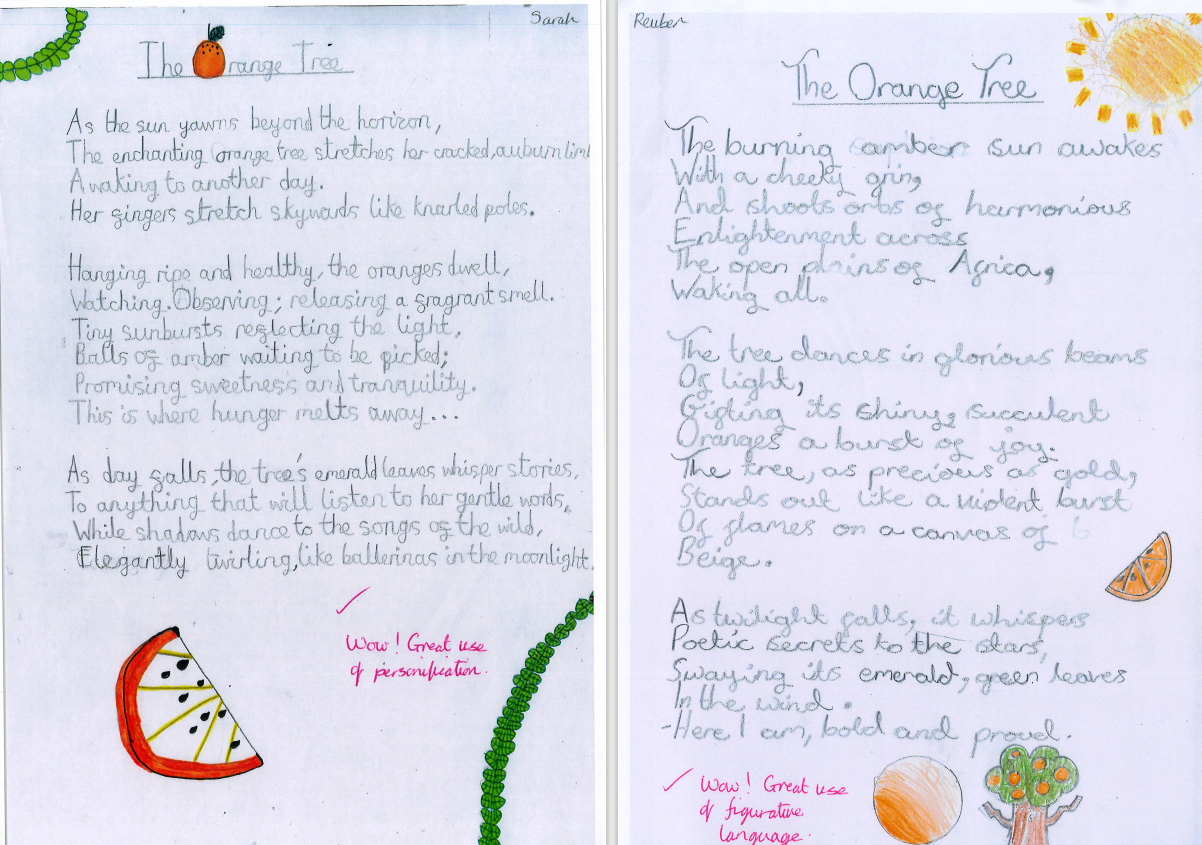 Sarah
The Orange Tree
As the sun yawns beyond the horizon,
The enchanting orange tree stretches her cracked, auburn limb
Awaking to another day.
Her fingers stretch skywards like knarled poles.
Hanging ripe and healthy, the oranges dwell,
Watching. Observing; releasing a fragrant smell.
Tiny sunbursts reflecting the light,
Balls of amber waiting to be picked;
Promising sweetness and tranquility.
This is where hunger melts away...
As day falls, the tree's emerald leaves whisper stories,
To anything that will listen to her gentle words,
While shadows dance to the songs of the wild,
Elegantly twirling, like ballerinas in the moonlight.
Wow! Great use
of personification.
Reuben
The Orange Tree
The burning amber sun awakes
With a cheeky grin,
And shoots orbs of harmonious
Enlightenment across
The open plains of Africa,
Waking all.
The tree dances in glorious beams
Of light,
Gifting its shiny, succulent
Oranges a burst of joy.
The tree, as precious as gold,
Stands out like a violent burst
Of flames on a canvas of
Beige.
As twilight falls, it whispers
Poetic secrets to the stars,
Swaying its emerald, green leaves
In the wind.
-Here I am, bold and proud.
Wow! Great use
of figurative
language.